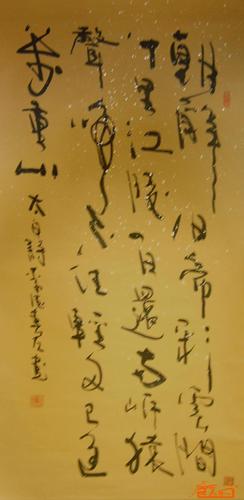 朝辭白帝彩雲間
千里江陵一日還兩岸猿
聲啼不住輕舟已過
萬重山 太白詩